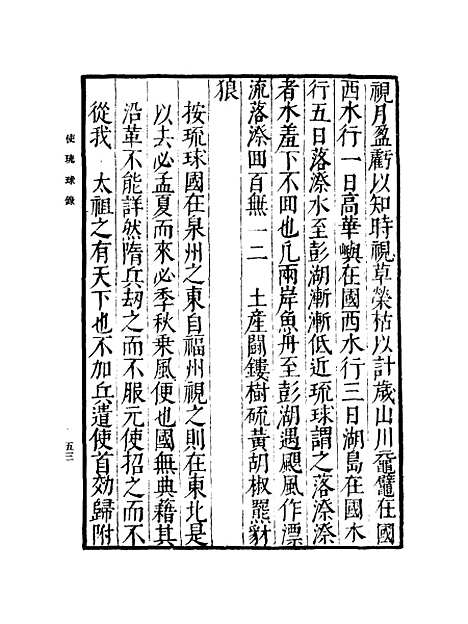 視月盈虧以知時視草榮枯以計歲山川黿鼊在國
西水行一日高華嶼在國西水行三日湖島在國水
行五日落漈水至彭湖漸漸低近琉球謂之落漈漈
者水羞下不回也凡兩岸魚舟至彭湖遇颶風作漂
流落漈回百無一二 土産鬪鏤樹硫黃胡椒羆豺
狼
按琉球國在泉州之東自福州視之則在東北是
以去必孟夏而來必季秋乗風便也國無典籍其
沿革不能詳然隋兵刧之而不服元使招之而不
從我 太祖之有天下也不加兵遣使首効歸附
使琉球錄
五三